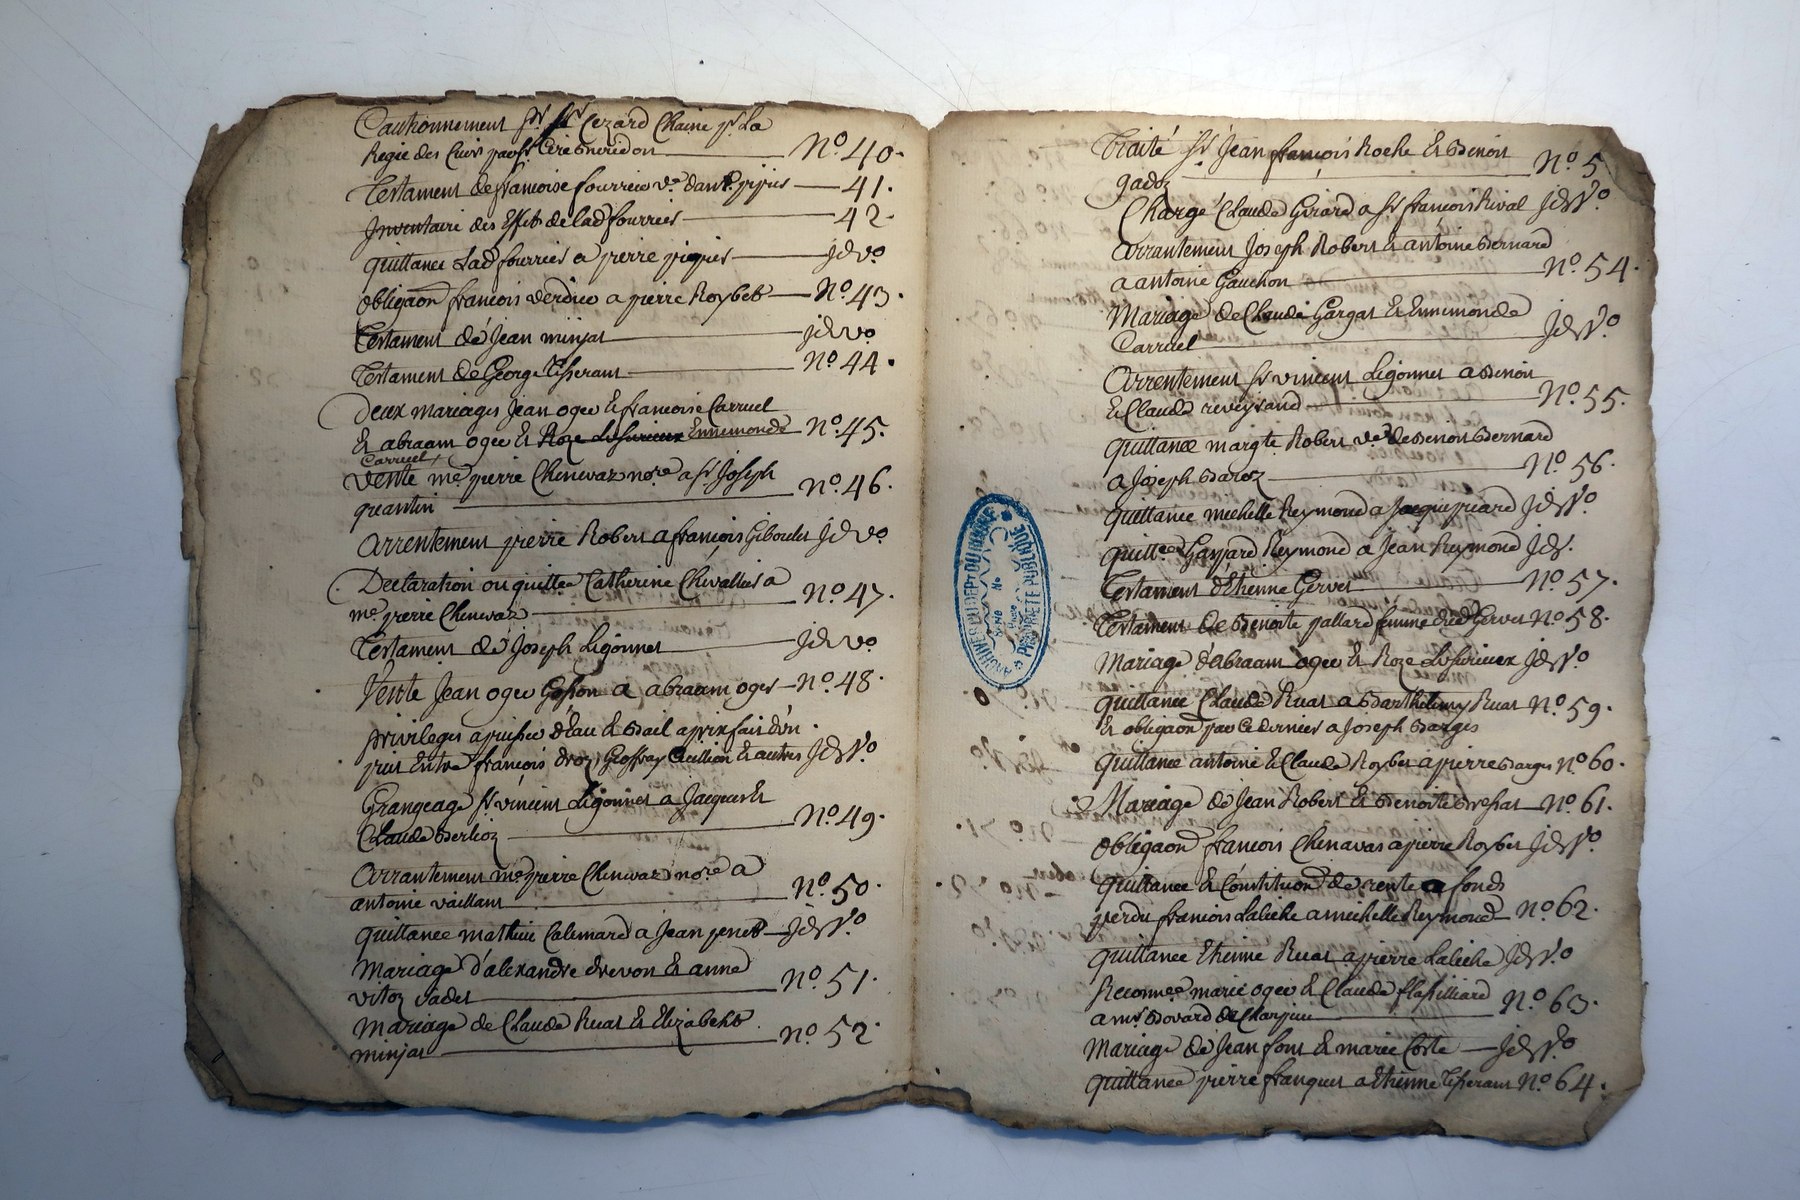 Cautionnement sr Cezard Chaine pr La
Regie des Cuirs N.º 40.
Testament de francoise fourrier ve. 41.
Inventaire des Effets de lad fourrier 42.
quittance Lad fourrier a pierre jd vo
obligaon francois verdier a pierre Roybet N.º 43.
Testament de Jean minjat jd vo
Testament de George Tisserant N.º 44.
Deux mariages Jean ogee & francoise Carruel
& abraam ogee & Roze Lesurieux Ennemonde N.º 45.
Carruel
Vente me. pierre Chenavaz nore. a sr Joseph
quantin N.º 46.
Arrentement pierre Robert a françois Giboulet Jd vo
Declaration ou quittce Catherine Chevallier a
me. pierre Chenavaz N.º 47.
Testament de Joseph Ligonnet Jd vo
Vente Jean ogee a abraam ogee N.º 48.
privileges d'Eau & Bail a prix fait d'un
puit Entre françois droz Geoffray Cuillion & autres Jd Vo
Grangeage sr vincent Ligonnet a Jacques &
Claude Berlioz N.º 49.
Arrantement me. pierre Chenavaz nore a
antoine vaillant N.º 50.
quittance mathieu Calemard a Jean penet Jd Vo
Mariage d'alexandre drevon & anne
vitoz cadet N.º 51.
Mariage de Claude Ruat & Elizabeht
minjat N.º 52.
Traité sr Jean françois Roche & Benoit
gadoz N.º 5
Charge Claude Girard a sr françois Rival Jd Vo
Arrantement Joseph Robert & antoine Bernard
a antoine Gauchon N.º 54.
Mariage de Claude Gargat & Ennemonde
Carruel Jd Vo
Arrentement sr vincent Ligonnet a Benoit
& Claude reveyrand N.º 55.
quittance margte Robert ve. de Benoit Bernard
a Joseph Baroz N.º 56.
quittance michelle Reymond a Jacque picard Jd Vo
quittce Gaspard Reymond a Jean Reymond Jd
Testament d'Etienne Gervet N.º 57.
Testament de Benoite pallard femme dud Gervet N.º 58.
Mariage d'abraam ogee & Roze Lesurieux Jd Vo
quittance Claude Ruat a Barthelemy Ruat N.º 59.
& obligaon par ce dernier a Joseph Barges
quittance antoine & Claude Roybet a pierre Barges N.º 60.
Mariage de Jean Robert & Benoite N.º 61.
obligaon francois Chenavas a pierre Roybet Jd Vo
quittance & Constitution de rente a fond
perdu francois Laliche a michelle Reymond N.º 62.
quittance Etienne Ruat a pierre Laliche Jd Vo
Reconnce marie ogee & Claude flassilliard
a mr. Bovard de N.º 63.
Mariage de Jean font & marie Coste Jd Vo
quittance pierre franquet a Etienne Tisserant N.º 64.
ARCHIVES DU DEPT DU RHONE
PROPRIETE PUBLIQUE